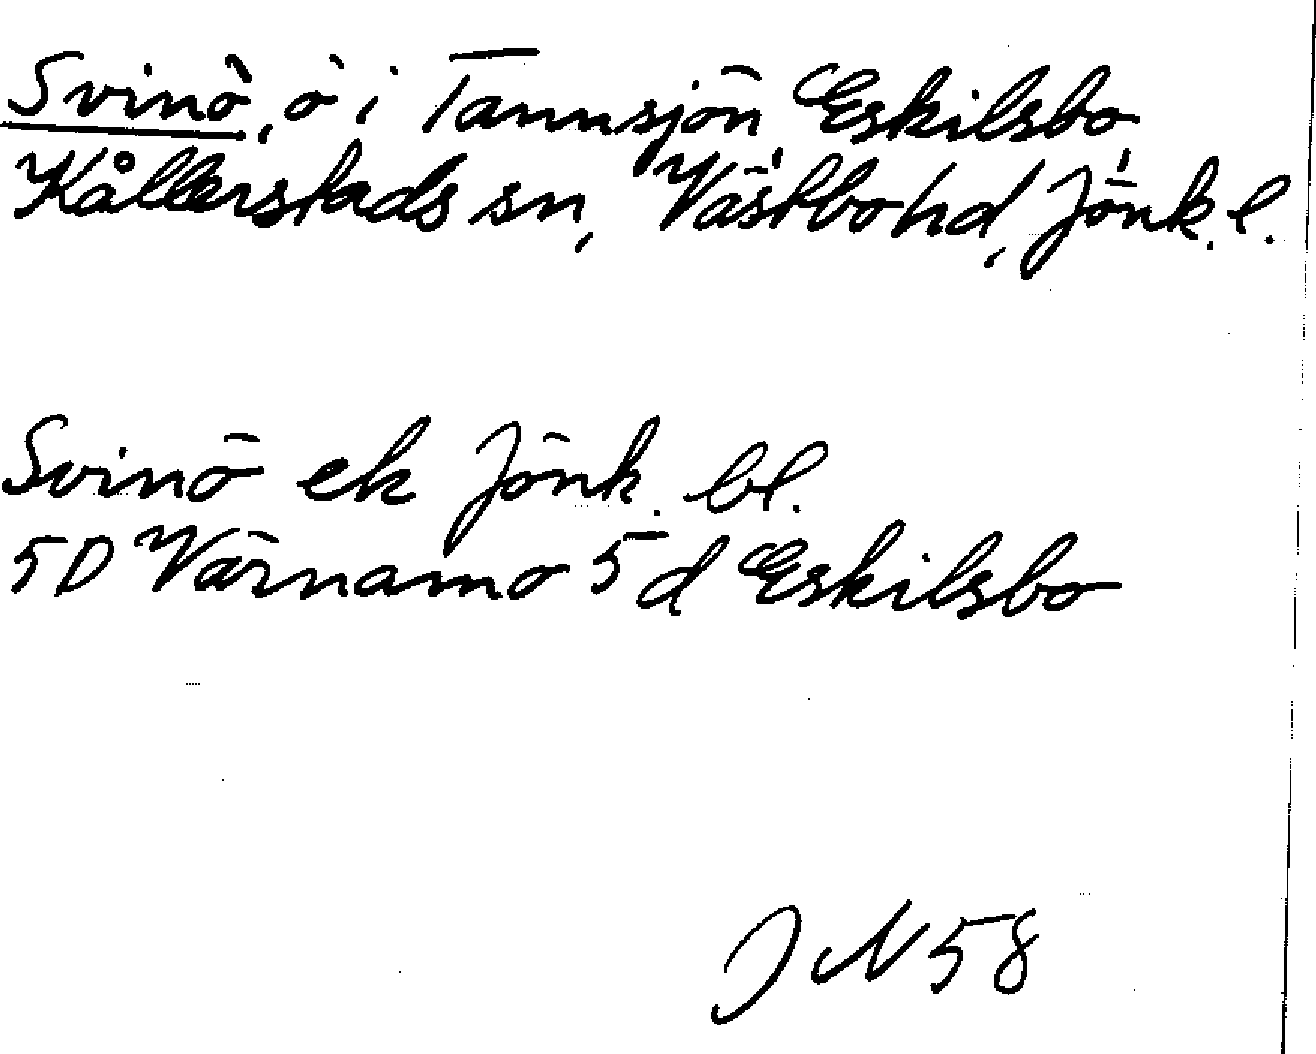 Svinö, ö i Tannsjön Eskilsbo
Kållerstads sn, Västbo hd, Jönk. l.
Svinö ek Jönk. bl.
5D Värnamo 5d Eskilsbo
JN58